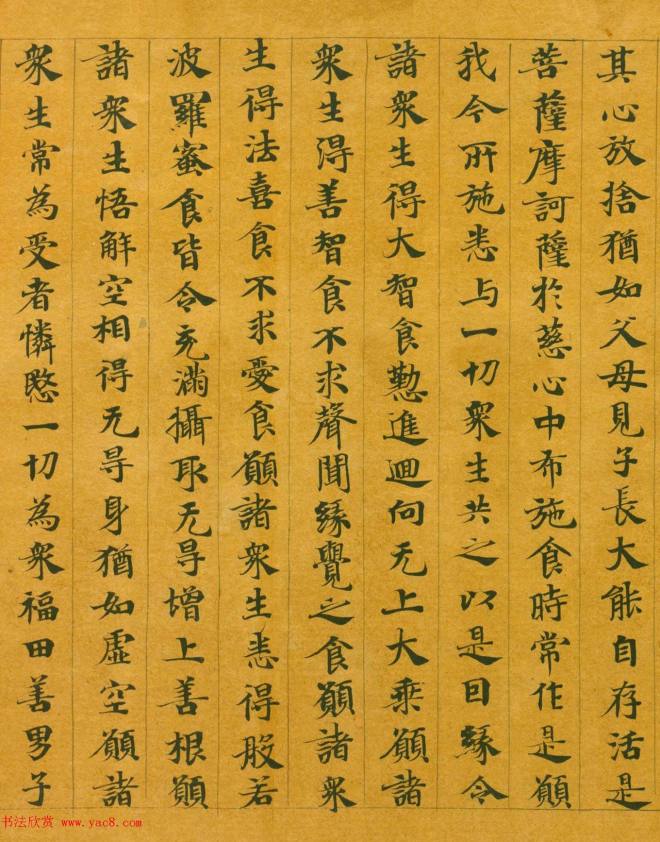 其心放捨猶如父母見子長大能自存活是
菩薩摩訶薩於慈心中布施食時常作是願
我今所施悉与一切衆生共之以是回緣令
諸衆生得大智食懃進迴向无上大乘願諸
衆生得善智食不求聲聞緣覺之食願諸衆
生得法喜食不求愛食願諸衆生悉得般若
波羅蜜食皆令充滿攝取无㝵增上善根願
諸衆生悟解空相得无㝵身猶如虛空願諸
衆生常為受者憐愍一切為衆福田善男子
书法欣赏 www.yac8.com